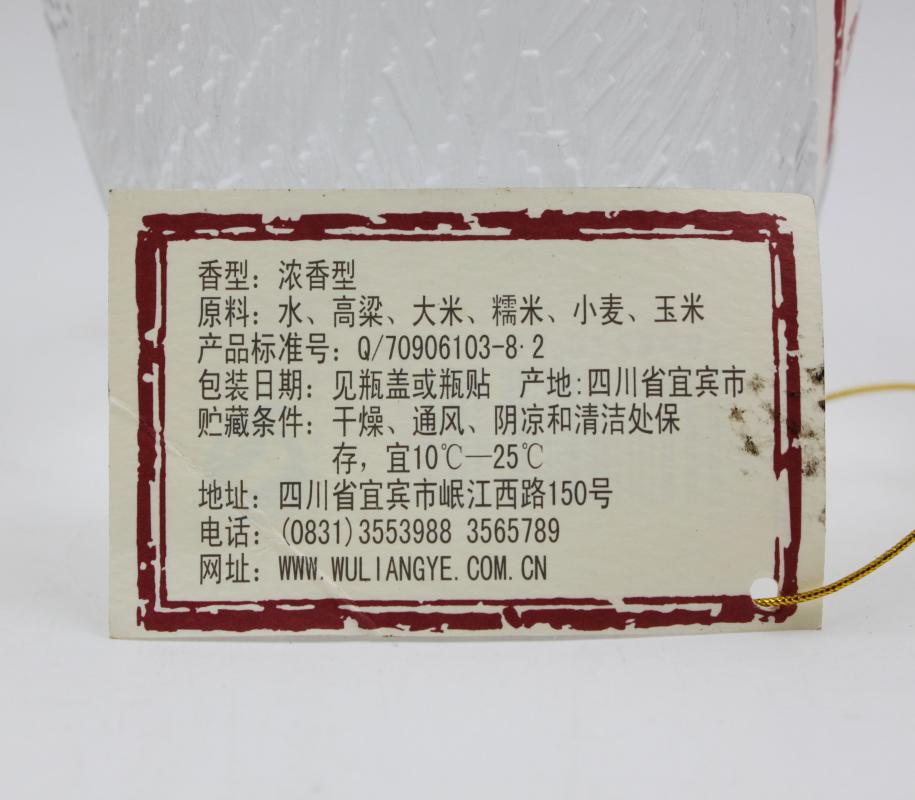 香型：浓香型
原料：水、高粱、大米、糯米、小麦、玉米
产品标准号：Q/70906103-8·2
包装日期：见瓶盖或瓶贴 产地:四川省宜宾市
贮藏条件：干燥、通风、阴凉和清洁处保
存，宜10℃—25℃
地址：四川省宜宾市岷江西路150号
电话：(0831)3553988 3565789
网址：WWW.WULIANGYE.COM.CN